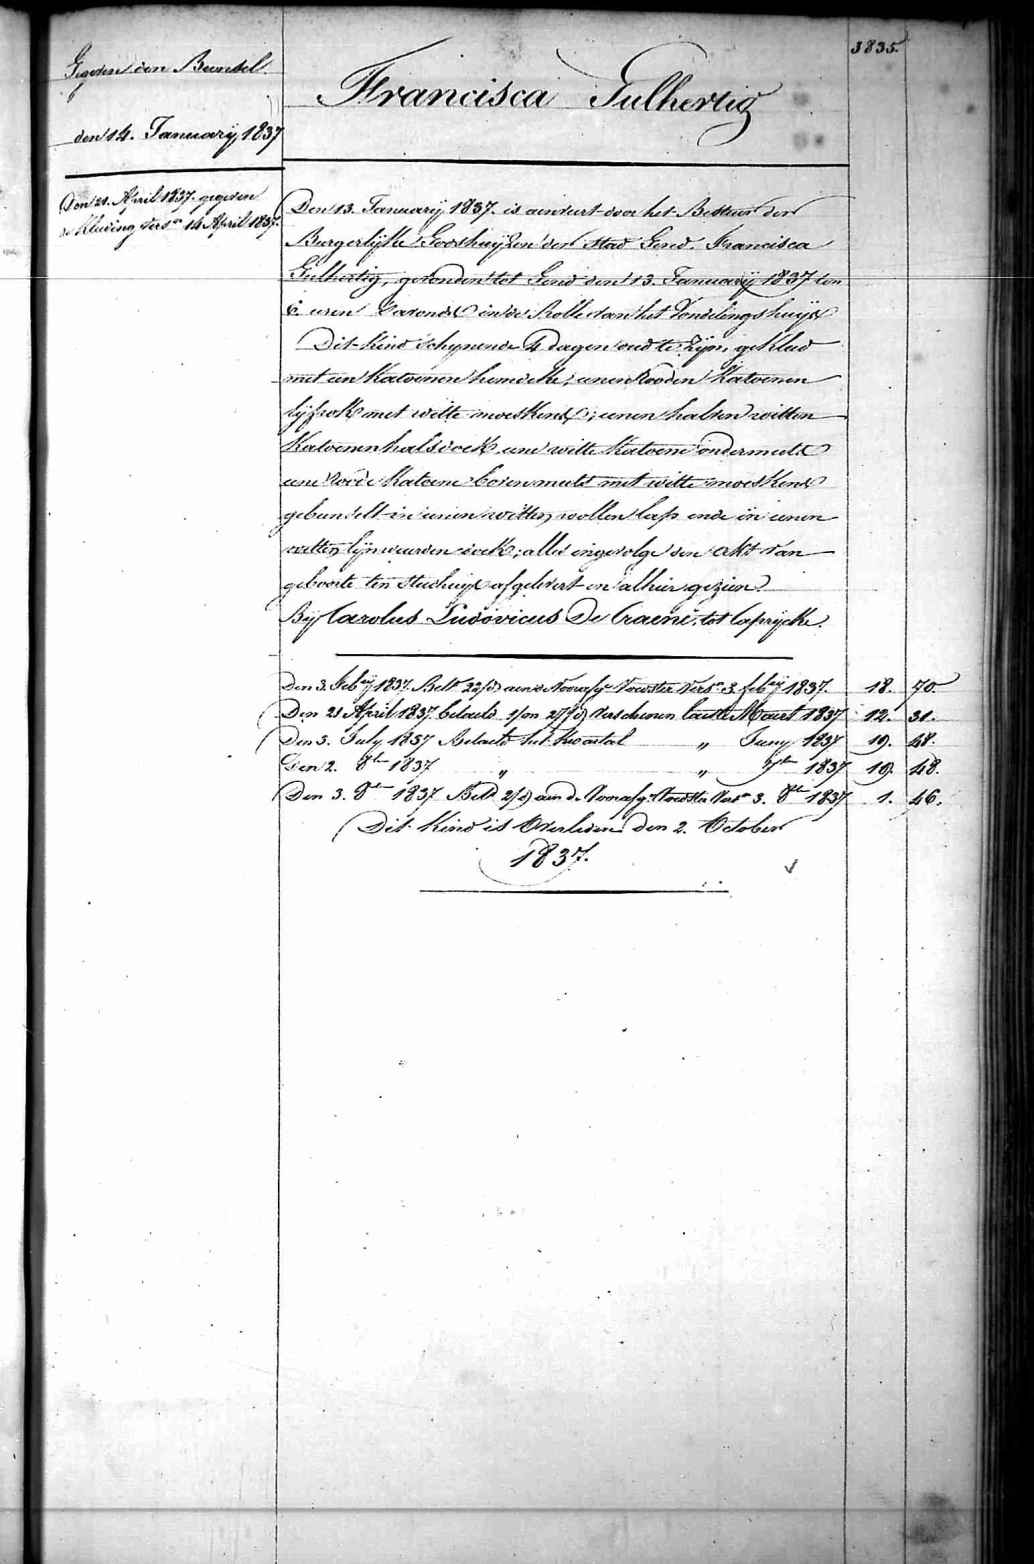 3835.
Gegeven den Bundel.
den 14. January 1837
Francisca Gulhertig
Den 21. April 1837. gegeven
de Kleeding vers.en 14 April 1837.
Den 13. January 1837. is aenveert door het Bestuur der
Burgerlyke Godshuyzen der Stad Gend. Francisca
Gulhertig, gevonden tot Gend den 13. January 1837 ten
6. uren s'avonds in de Rolle van het Vondelingshuys
Dit Kind schynende 4 dagen oud te zyn, gekleed
met een Katoenen hemdeke, eenen Rooden Katoenen
lyfrok met witte moeskens; eenen halven witten
Katoenen halsdoek eene witte Katoene ondermuts
eene roode Katoene bovenmuts met witte moeskens
gebundelt in eenen witten wollen lap ende in eenen
witten lynwaerden doek; alles ingevolge den Akt van
geboorte ten Stadhuyse afgelevert en alhier gezien.
By Carolus Ludovicus De Craene, tot Caprycke.
Den 3. Feb.ry 1837. Bet. 22/ aen de Voorafg. Voedster Vers.n 3. feb.ry 1837. 18. 70.
Den 21 April 1837. betaeld 1/ on 27/ verschenen laeste Maert 1837 12. 31.
Den 3. July 1837 Betaeld het Kwartal " Juny 1837 19. 48.
Den 2. 8.ber 1837 " " 7.ber 1837 19. 48.
Den 3. 8.ber 1837 Bet. 2/ aen de Voorafg. Voedster Vers.n 3. 8.ber 1837 1. 46.
Dit Kind is Overleden den 2. October
1837.